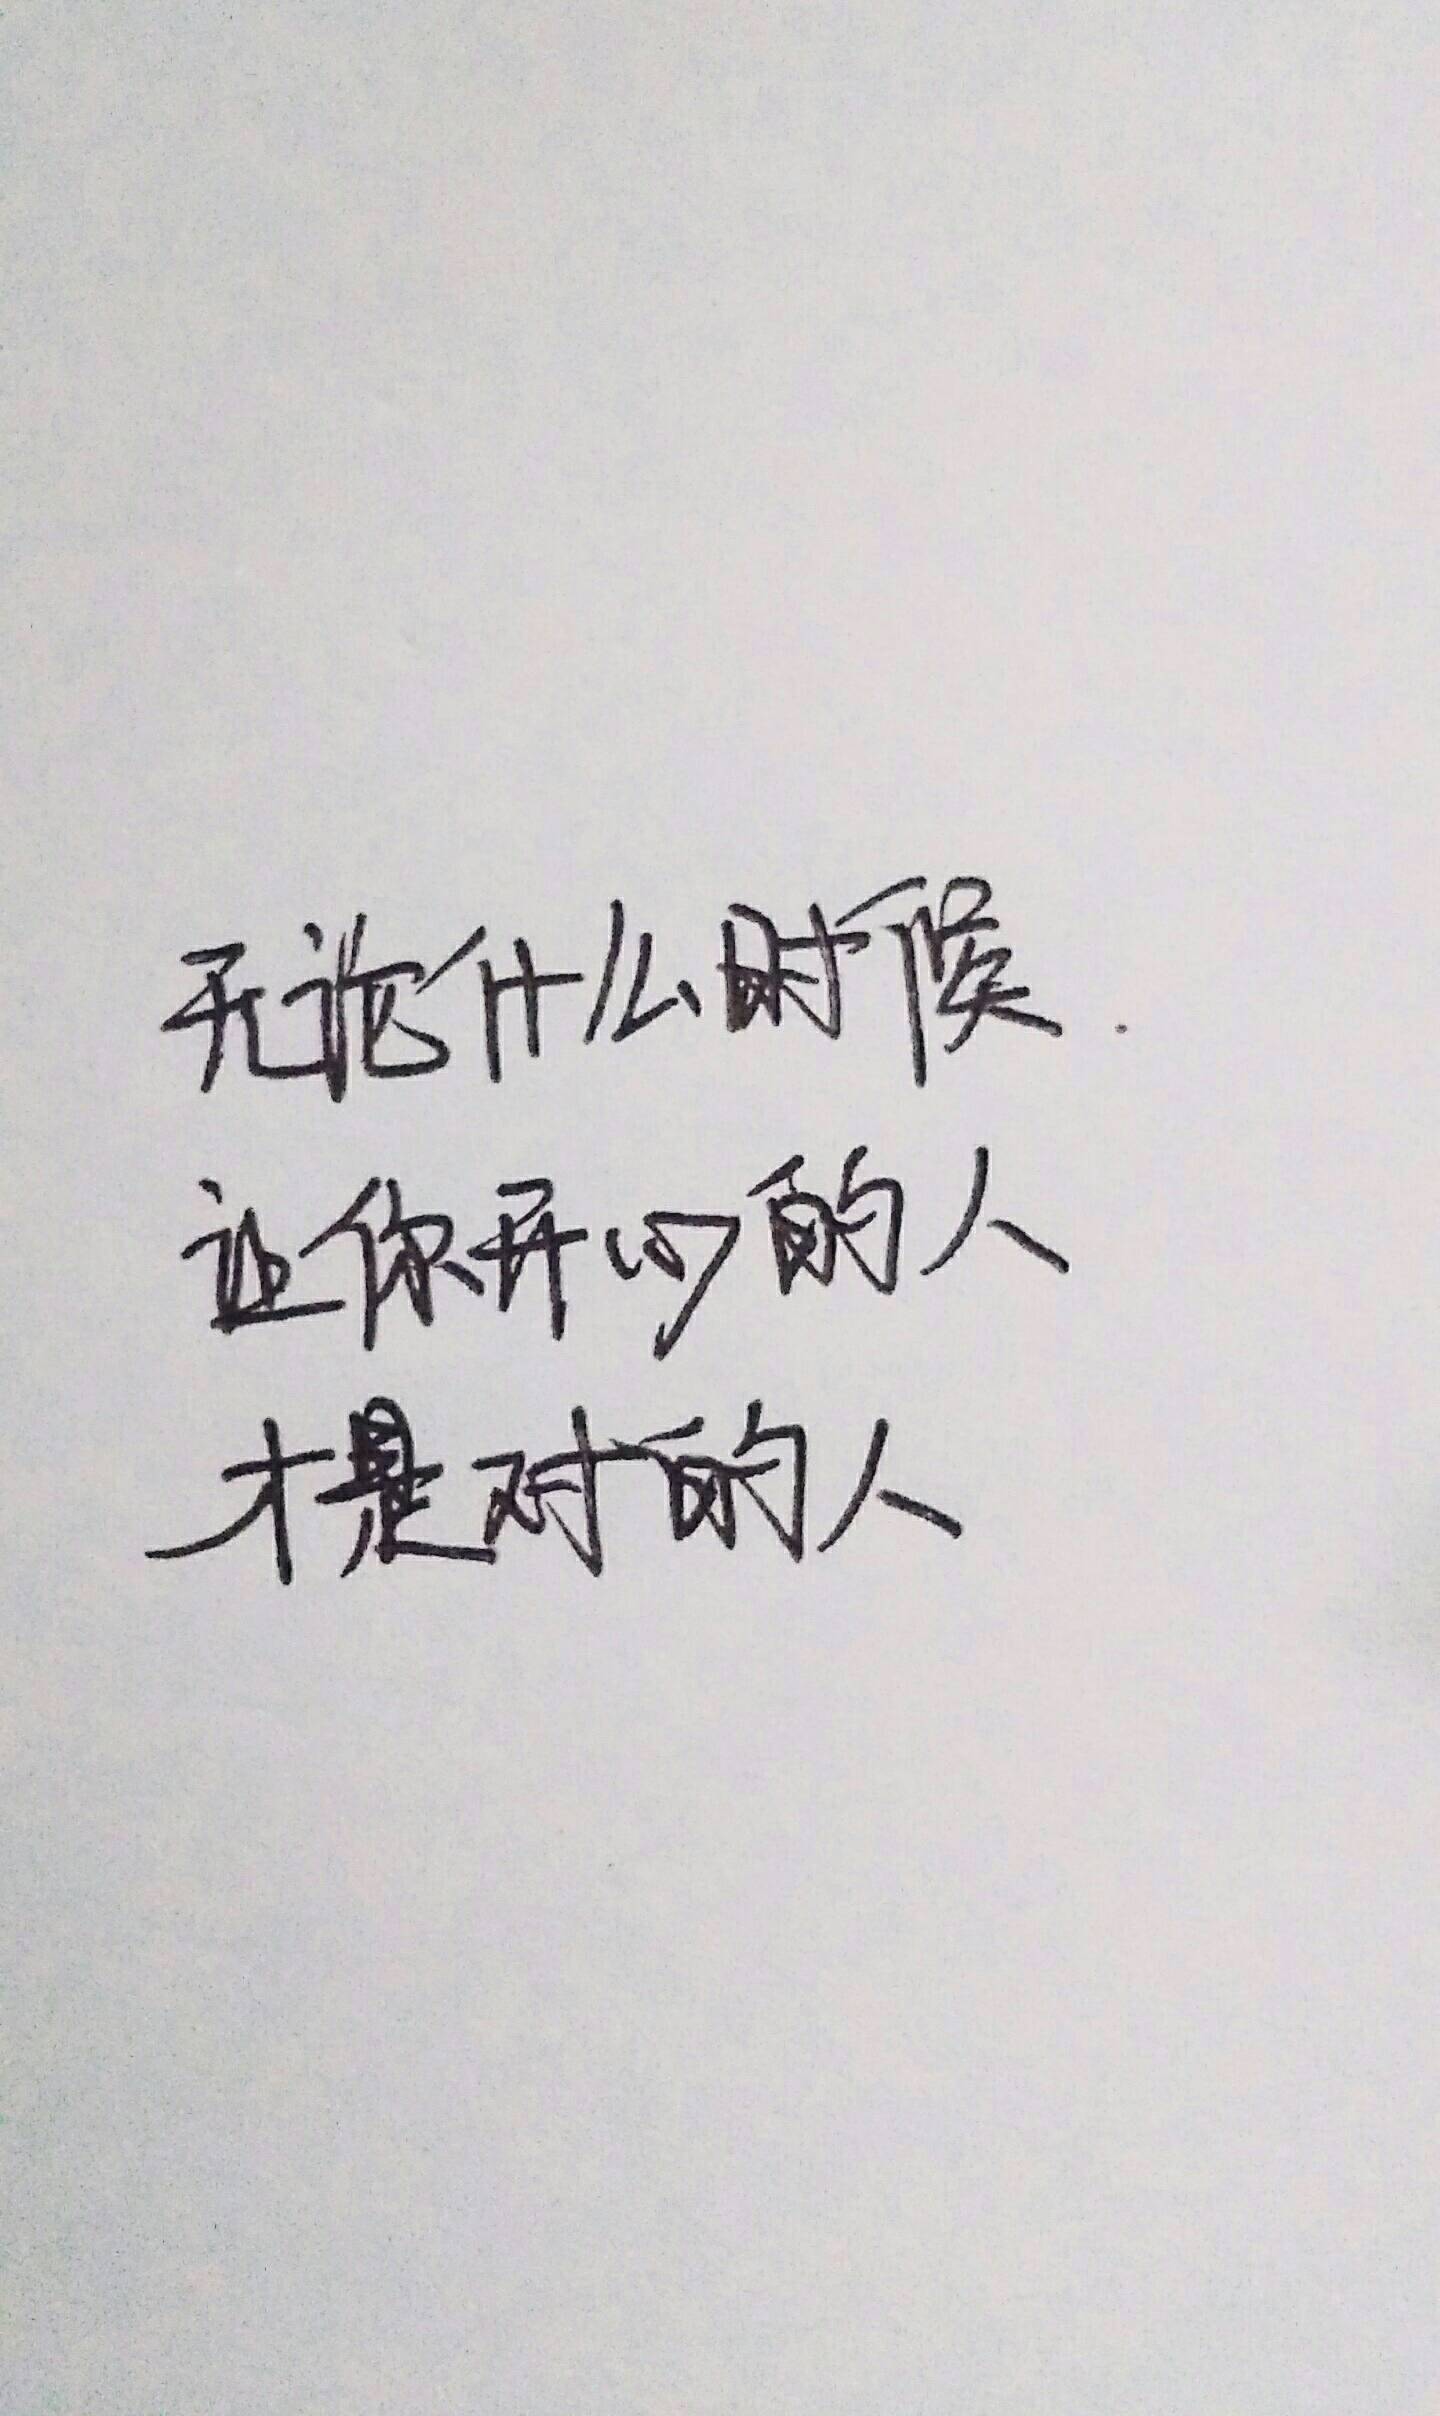 无论什么时候.
让你开心的人
才是对的人